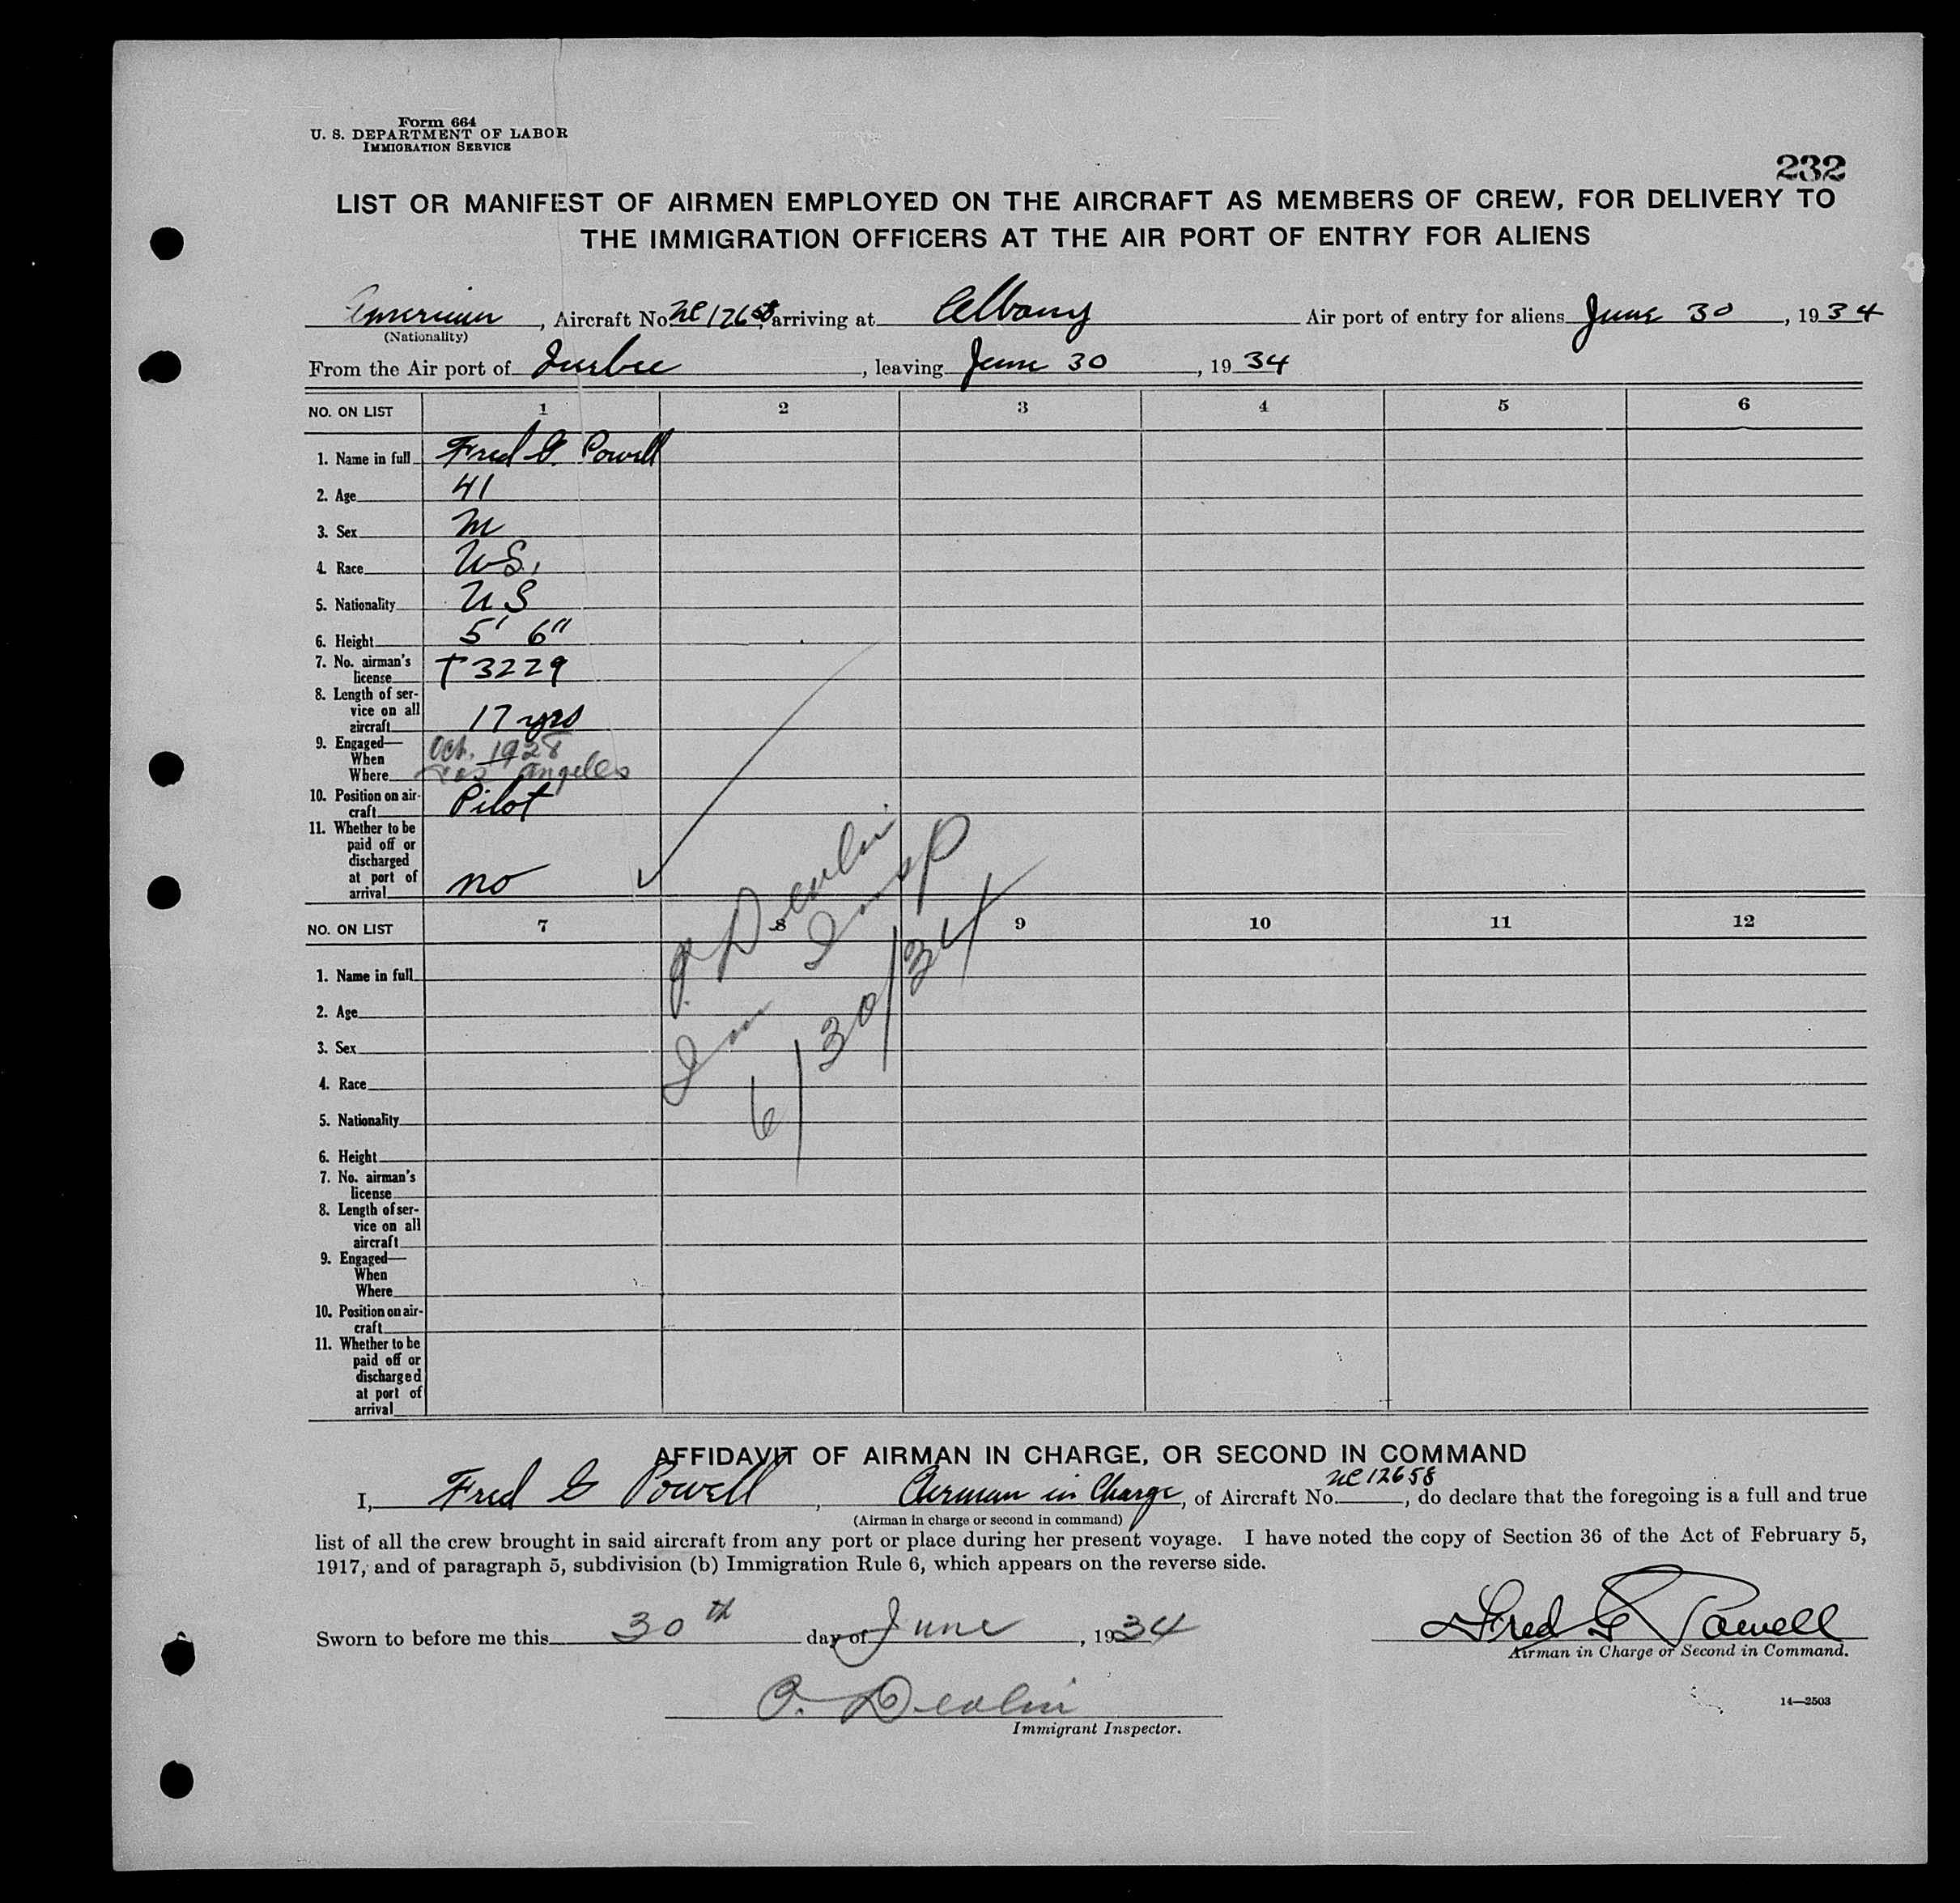 Form 664
U. S. DEPARTMENT OF LABOR
IMMIGRATION SERVICE
232
LIST OR MANIFEST OF AIRMEN EMPLOYED ON THE AIRCRAFT AS MEMBERS OF CREW, FOR DELIVERY TO
THE IMMIGRATION OFFICERS AT THE AIR PORT OF ENTRY FOR ALIENS
American, Aircraft No. NC12658, arriving at Albany Air port of entry for aliens June 30, 1934
(Nationality)
From the Air port of , leaving June 30, 1934
NO. ON LIST 1 2 3 4 5 6
1. Name in full Fred G. Powell
2. Age 41
3. Sex M
4. Race U.S.
5. Nationality U S
6. Height 5' 6"
7. No. airman's
license T 3229
8. Length of ser-
vice on all
aircraft 17 yrs
9. Engaged—
When Oct. 1928
Where Los Angeles
10. Position on air-
craft Pilot
11. Whether to be
paid off or
discharged
at port of
arrival no
Devlin
Imm Insp
6/30/34
NO. ON LIST 7 8 9 10 11 12
1. Name in full
2. Age
3. Sex
4. Race
5. Nationality
6. Height
7. No. airman's
license
8. Length of ser-
vice on all
aircraft
9. Engaged—
When
Where
10. Position on air-
craft
11. Whether to be
paid off or
discharged
at port of
arrival
AFFIDAVIT OF AIRMAN IN CHARGE, OR SECOND IN COMMAND
I, Fred G Powell, Airman in Charge, of Aircraft No. NC12658, do declare that the foregoing is a full and true
(Airman in charge or second in command)
list of all the crew brought in said aircraft from any port or place during her present voyage. I have noted the copy of Section 36 of the Act of February 5,
1917, and of paragraph 5, subdivision (b) Immigration Rule 6, which appears on the reverse side.
Sworn to before me this 30th day of June, 1934
Fred G Powell
Airman in Charge or Second in Command.
Devlin
Immigrant Inspector.
14—2503